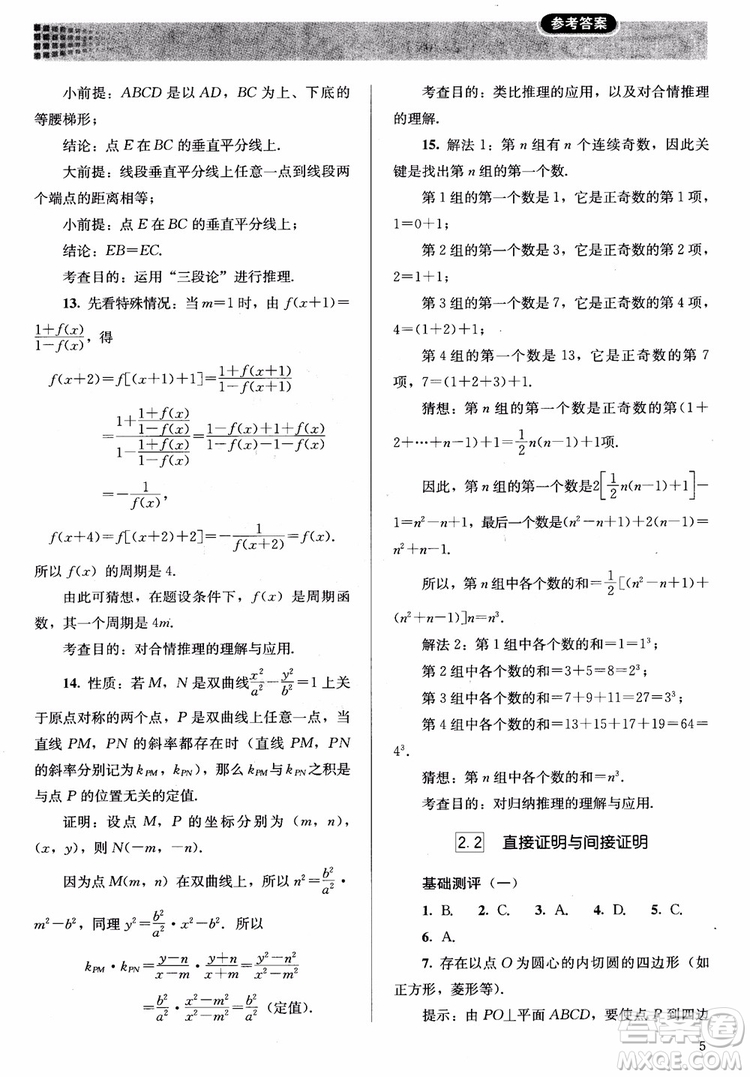 参考答案
小前提：ABCD 是以 AD，BC 为上、下底的
等腰梯形；
结论：点 E 在 BC 的垂直平分线上.
大前提：线段垂直平分线上任意一点到线段两
个端点的距离相等；
小前提：点 E 在 BC 的垂直平分线上；
结论：EB=EC.
考查目的：运用“三段论”进行推理.
13. 先看特殊情况：当 m=1 时，由 f(x+1)=
\frac{1+f(x)}{1-f(x)}，得
f(x+2)=f[(x+1)+1]=\frac{1+f(x+1)}{1-f(x+1)}
=\frac{1+\frac{1+f(x)}{1-f(x)}}{1-\frac{1+f(x)}{1-f(x)}}=\frac{1-f(x)+1+f(x)}{1-f(x)-1-f(x)}
=-\frac{1}{f(x)}，
f(x+4)=f[(x+2)+2]=-\frac{1}{f(x+2)}=f(x).
所以 f(x) 的周期是 4.
由此可猜想，在题设条件下，f(x) 是周期函
数，其一个周期是 4m.
考查目的：对合情推理的理解与应用.
14. 性质：若 M，N 是双曲线\frac{x²}{a²}-\frac{y²}{b²}=1 上关
于原点对称的两个点，P 是双曲线上任意一点，当
直线 PM，PN 的斜率都存在时（直线 PM，PN
的斜率分别记为 k_{PM}，k_{PN}），那么 k_{PM} 与 k_{PN} 之积是
与点 P 的位置无关的定值.
证明：设点 M，P 的坐标分别为（m，n），
（x，y），则 N（-m，-n）.
因为点 M(m，n) 在双曲线上，所以 n²=\frac{b²}{a²}·
m²-b²，同理 y²=\frac{b²}{a²}·x²-b². 所以
k_{PM}·k_{PN}=\frac{y-n}{x-m}·\frac{y+n}{x+m}=\frac{y²-n²}{x²-m²}
=\frac{b²}{a²}·\frac{x²-m²}{x²-m²}=\frac{b²}{a²}（定值）.
考查目的：类比推理的应用，以及对合情推理
的理解.
15. 解法 1：第 n 组有 n 个连续奇数，因此关
键是找出第 n 组的第一个数.
第 1 组的第一个数是 1，它是正奇数的第 1 项，
1=0+1；
第 2 组的第一个数是 3，它是正奇数的第 2 项，
2=1+1；
第 3 组的第一个数是 7，它是正奇数的第 4 项，
4=(1+2)+1；
第 4 组的第一个数是 13，它是正奇数的第 7
项，7=(1+2+3)+1.
猜想：第 n 组的第一个数是正奇数的第(1+
2+…+n)+1=\frac{1}{2}n(n-1)+1项.
因此，第 n 组的第一个数是2[\frac{1}{2}n(n-1)+1]-
1=n²-n+1，最后一个数是(n²-n+1)+2(n-1)=
n²+n-1.
所以，第 n 组中各个数的和=\frac{1}{2}[(n²-n+1)+
(n²+n-1)]n=n³.
解法 2：第 1 组中各个数的和=1=1³；
第 2 组中各个数的和=3+5=8=2³；
第 3 组中各个数的和=7+9+11=27=3³；
第 4 组中各个数的和=13+15+17+19=64=
4³.
猜想：第 n 组中各个数的和=n³.
考查目的：对归纳推理的理解与应用.
2.2 直接证明与间接证明
基础测评（一）
1. B. 2. C. 3. A. 4. B. 5. C.
6. A.
7. 存在以点 O 为圆心的内切圆的四边形（如
正方形，菱形等）.
提示：由 PO⊥平面 ABCD，要使点 P 到四边
5
答案圈
MXQE.COM